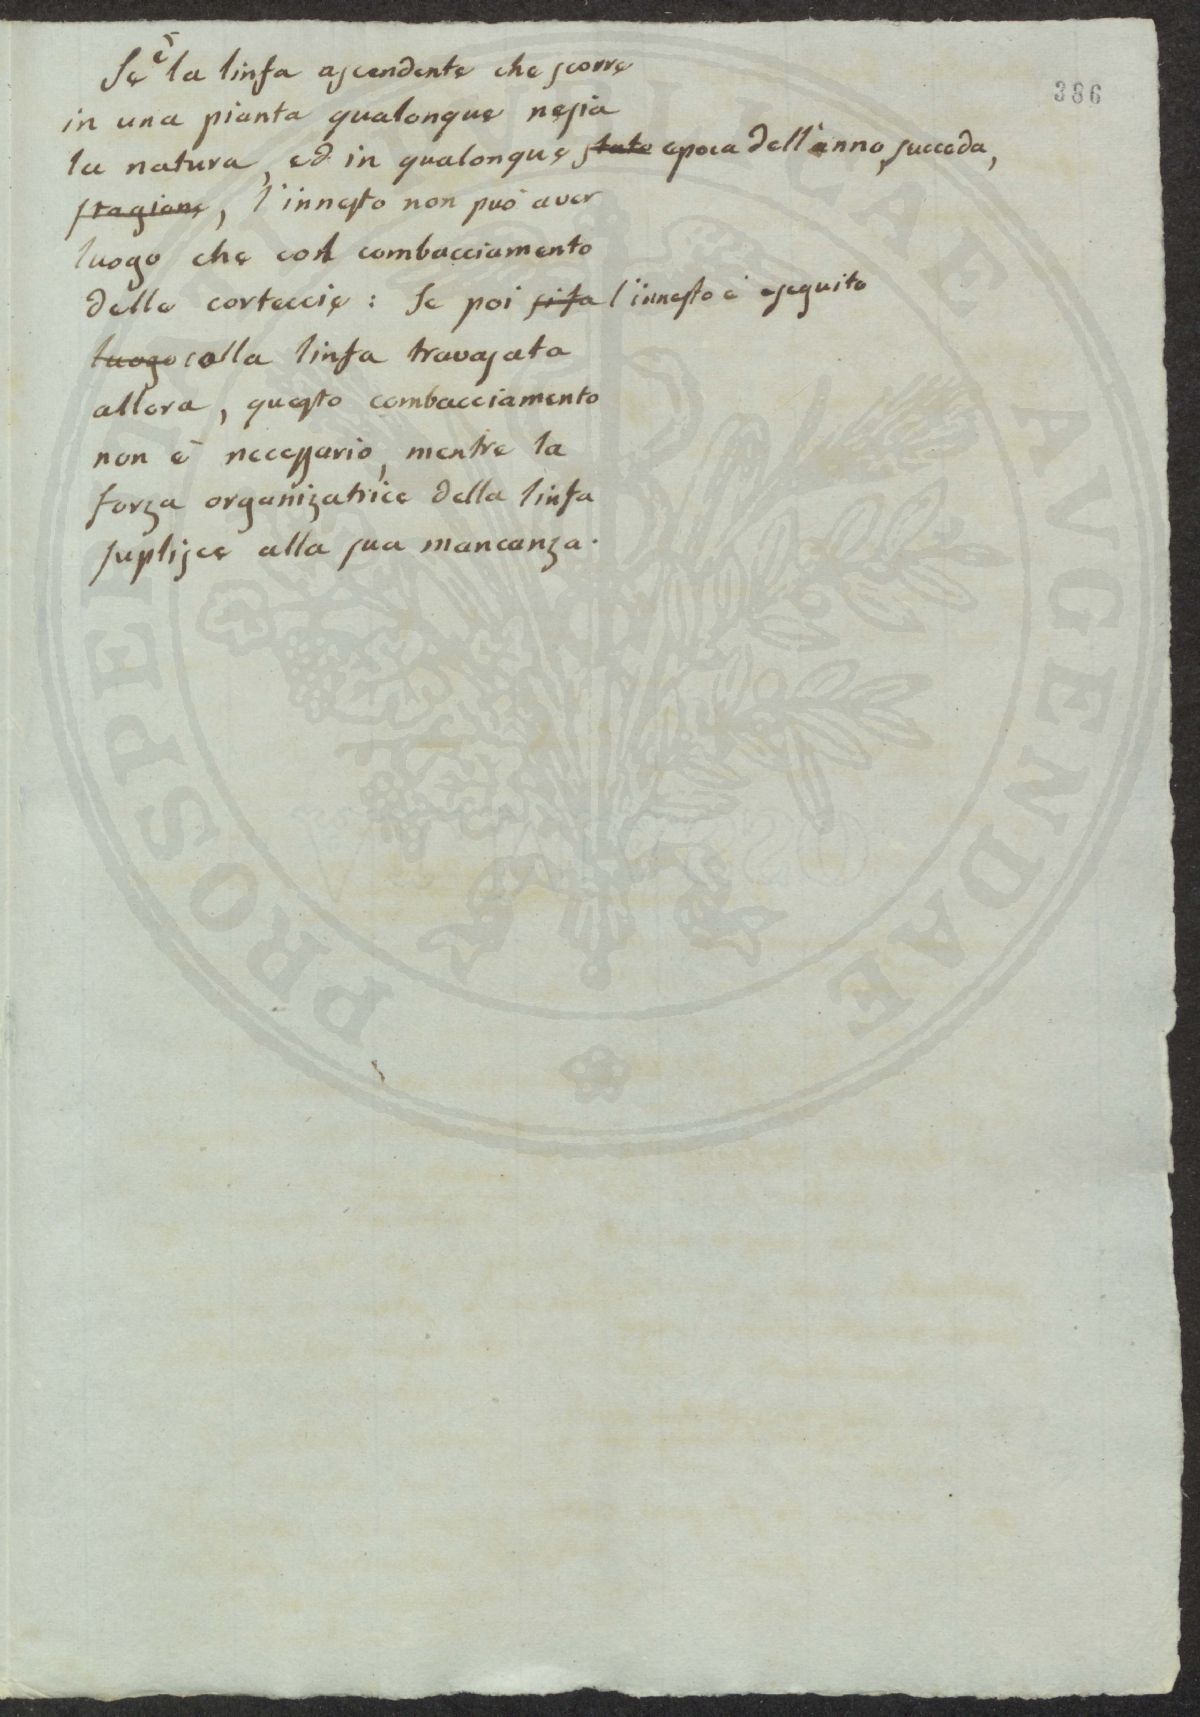 386
Se è la linfa ascendente che scorre
in una pianta qualonque nesia
la natura, ed in qualonque stato epoca dell'anno, succeda,
stagione, l'innesto non può aver
luogo che col combacciamento
delle corteccie: Se poi si fa l'innesto è eseguito
luogo colla linfa travasata
allora, questo combacciamento
non è necessario, mentre la
forza organizatrice della linfa
suplisce alla sua mancanza.
PROSPERITATI PUBLICAE AVGENDAE